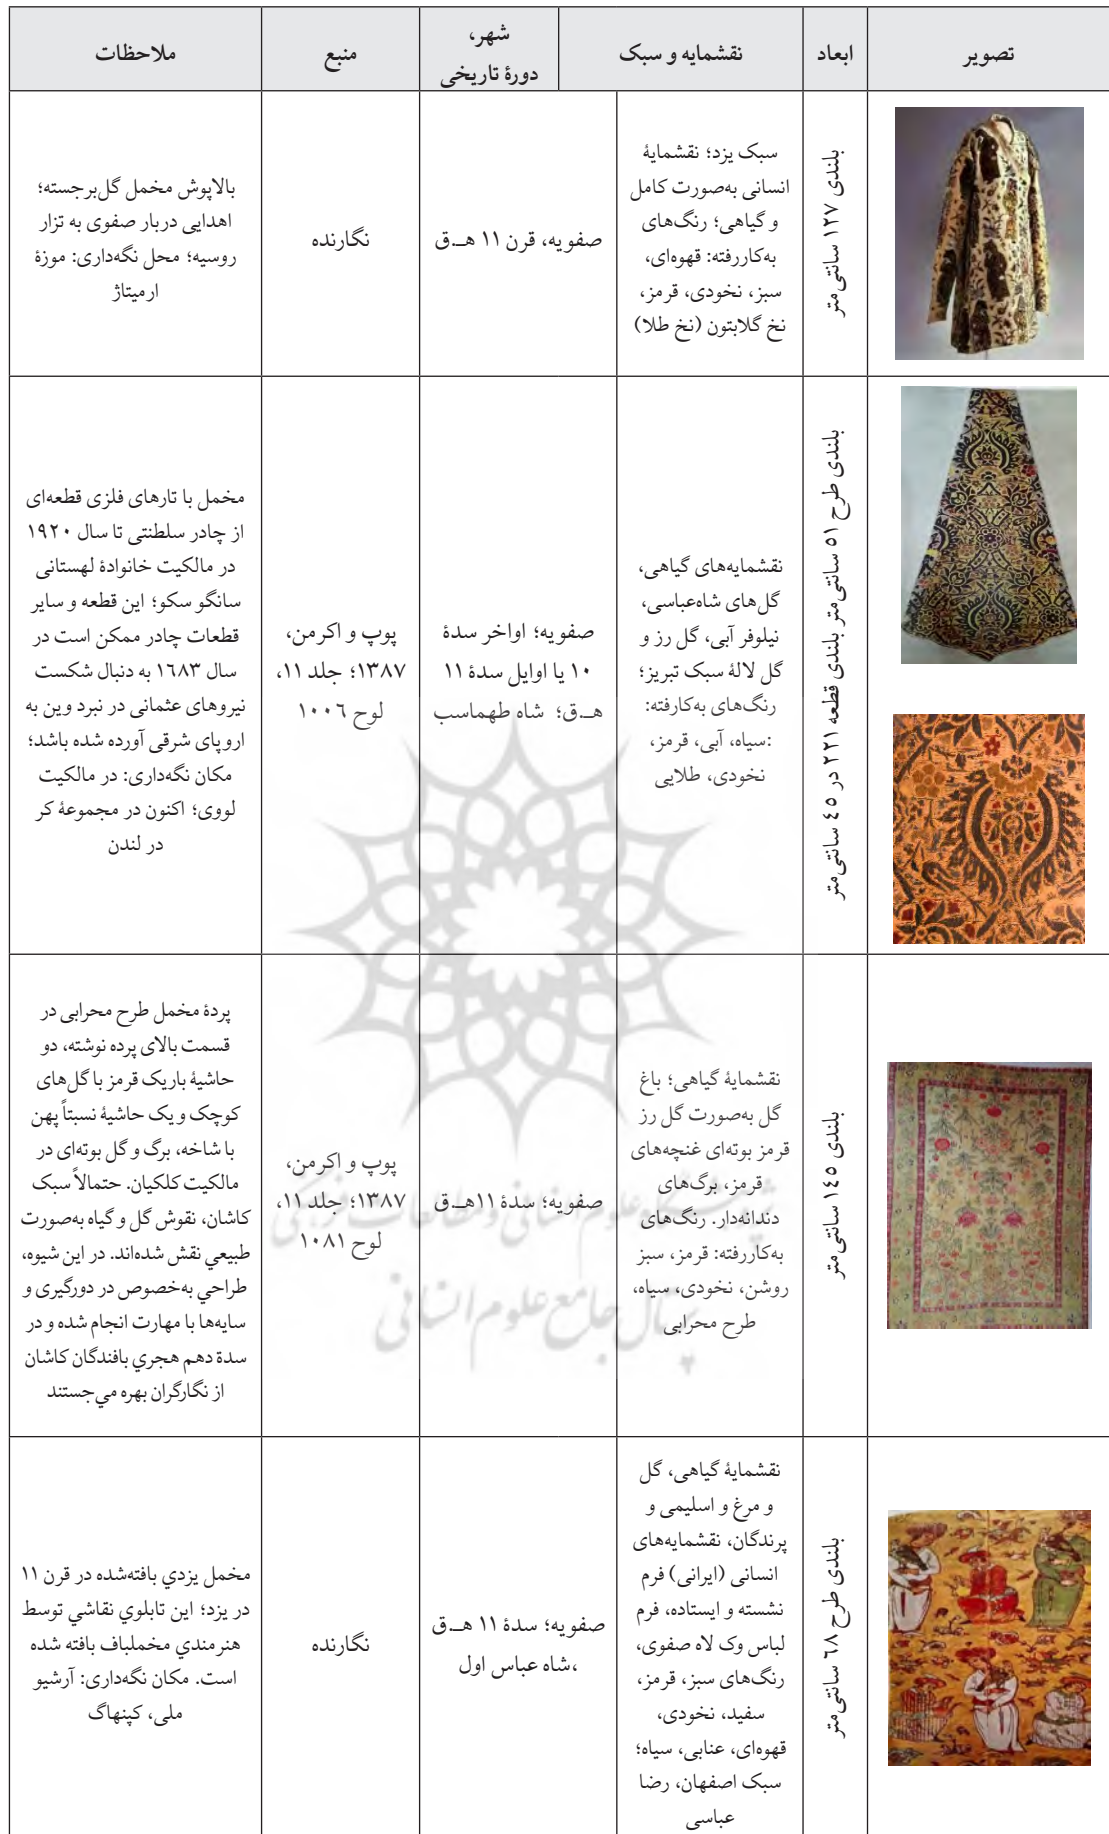 تصویر
ابعاد
نقشمایه و سبک
شهر،
دورهٔ تاریخی
منبع
ملاحظات
بلندی ۱۲۷ سانتی‌متر
سبک یزد؛ نقشمایهٔ
انسانی به‌صورت کامل
و گیاهی؛ رنگ‌های
به‌کاررفته: قهوه‌ای،
سبز، نخودی، قرمز،
نخ گلابتون (نخ طلا)
صفویه، قرن ۱۱ هـ.ق
نگارنده
بالاپوش مخمل گل‌برجسته؛
اهدایی دربار صفوی به تزار
روسیه؛ محل نگه‌داری: موزهٔ
ارمیتاژ
بلندی طرح ۵۱ سانتی‌متر بلندی قطعه ۲۲۱ در ۴۵ سانتی‌متر
نقشمایه‌های گیاهی،
گل‌های شاه‌عباسی،
نیلوفر آبی، گل رز و
گل لالهٔ سبک تبریز؛
رنگ‌های به‌کارفته:
:سیاه، آبی، قرمز،
نخودی، طلایی
صفویه؛ اواخر سدهٔ
۱۰ یا اوایل سدهٔ ۱۱
هـ.ق؛ شاه طهماسب
پوپ و اکرمن،
۱۳۸۷؛ جلد ۱۱،
لوح ۱۰۰۶
مخمل با تارهای فلزی قطعه‌ای
از چادر سلطنتی تا سال ۱۹۲۰
در مالکیت خانوادهٔ لهستانی
سانگو سکو؛ این قطعه و سایر
قطعات چادر ممکن است در
سال ۱۶۸۳ به دنبال شکست
نیروهای عثمانی در نبرد وین به
اروپای شرقی آورده شده باشد؛
مکان نگه‌داری: در مالکیت
لووی؛ اکنون در مجموعهٔ کر
در لندن
بلندی ۱۴۵ سانتی‌متر
نقشمایهٔ گیاهی؛ باغ
گل به‌صورت گل رز
قرمز بوته‌ای غنچه‌های
قرمز، برگ‌های
دندانه‌دار. رنگ‌های
به‌کاررفته: قرمز، سبز
روشن، نخودی، سیاه،
طرح محرابی
صفویه؛ سدهٔ ۱۱هـ.ق
پوپ و اکرمن،
۱۳۸۷؛ جلد ۱۱،
لوح ۱۰۸۱
پردهٔ مخمل طرح محرابی در
قسمت بالای پرده نوشته، دو
حاشیهٔ باریک قرمز با گل‌های
کوچک و یک حاشیهٔ نسبتاً پهن
با شاخه، برگ و گل بوته‌ای در
مالکیت کلکیان. حتمالاً سبک
کاشان، نقوش گل و گیاه به‌صورت
طبیعي نقش شده‌اند. در این شیوه،
طراحي به‌خصوص در دورگیری و
سایه‌ها با مهارت انجام شده و در
سدهٔ دهم هجري بافندگان کاشان
از نگارگران بهره مي‌جستند
بلندی طرح ۶۸ سانتی‌متر
نقشمایهٔ گیاهی، گل
و مرغ و اسلیمی و
پرندگان، نقشمایه‌های
انسانی (ایرانی) فرم
نشسته و ایستاده، فرم
لباس وک لاه صفوی،
رنگ‌های سبز، قرمز،
سفید، نخودی،
قهوه‌ای، عنابی، سیاه؛
سبک اصفهان، رضا
عباسی
صفویه؛ سدهٔ ۱۱ هـ.ق
،شاه عباس اول
نگارنده
مخمل یزدي بافته‌شده در قرن ۱۱
در یزد؛ این تابلوي نقاشي توسط
هنرمندي مخملباف بافته شده
است. مکان نگه‌داری: آرشیو
ملی، کپنهاگ
پژوهشگاه علوم انسانی و مطالعات فرهنگی
پرتال جامع علوم انسانی